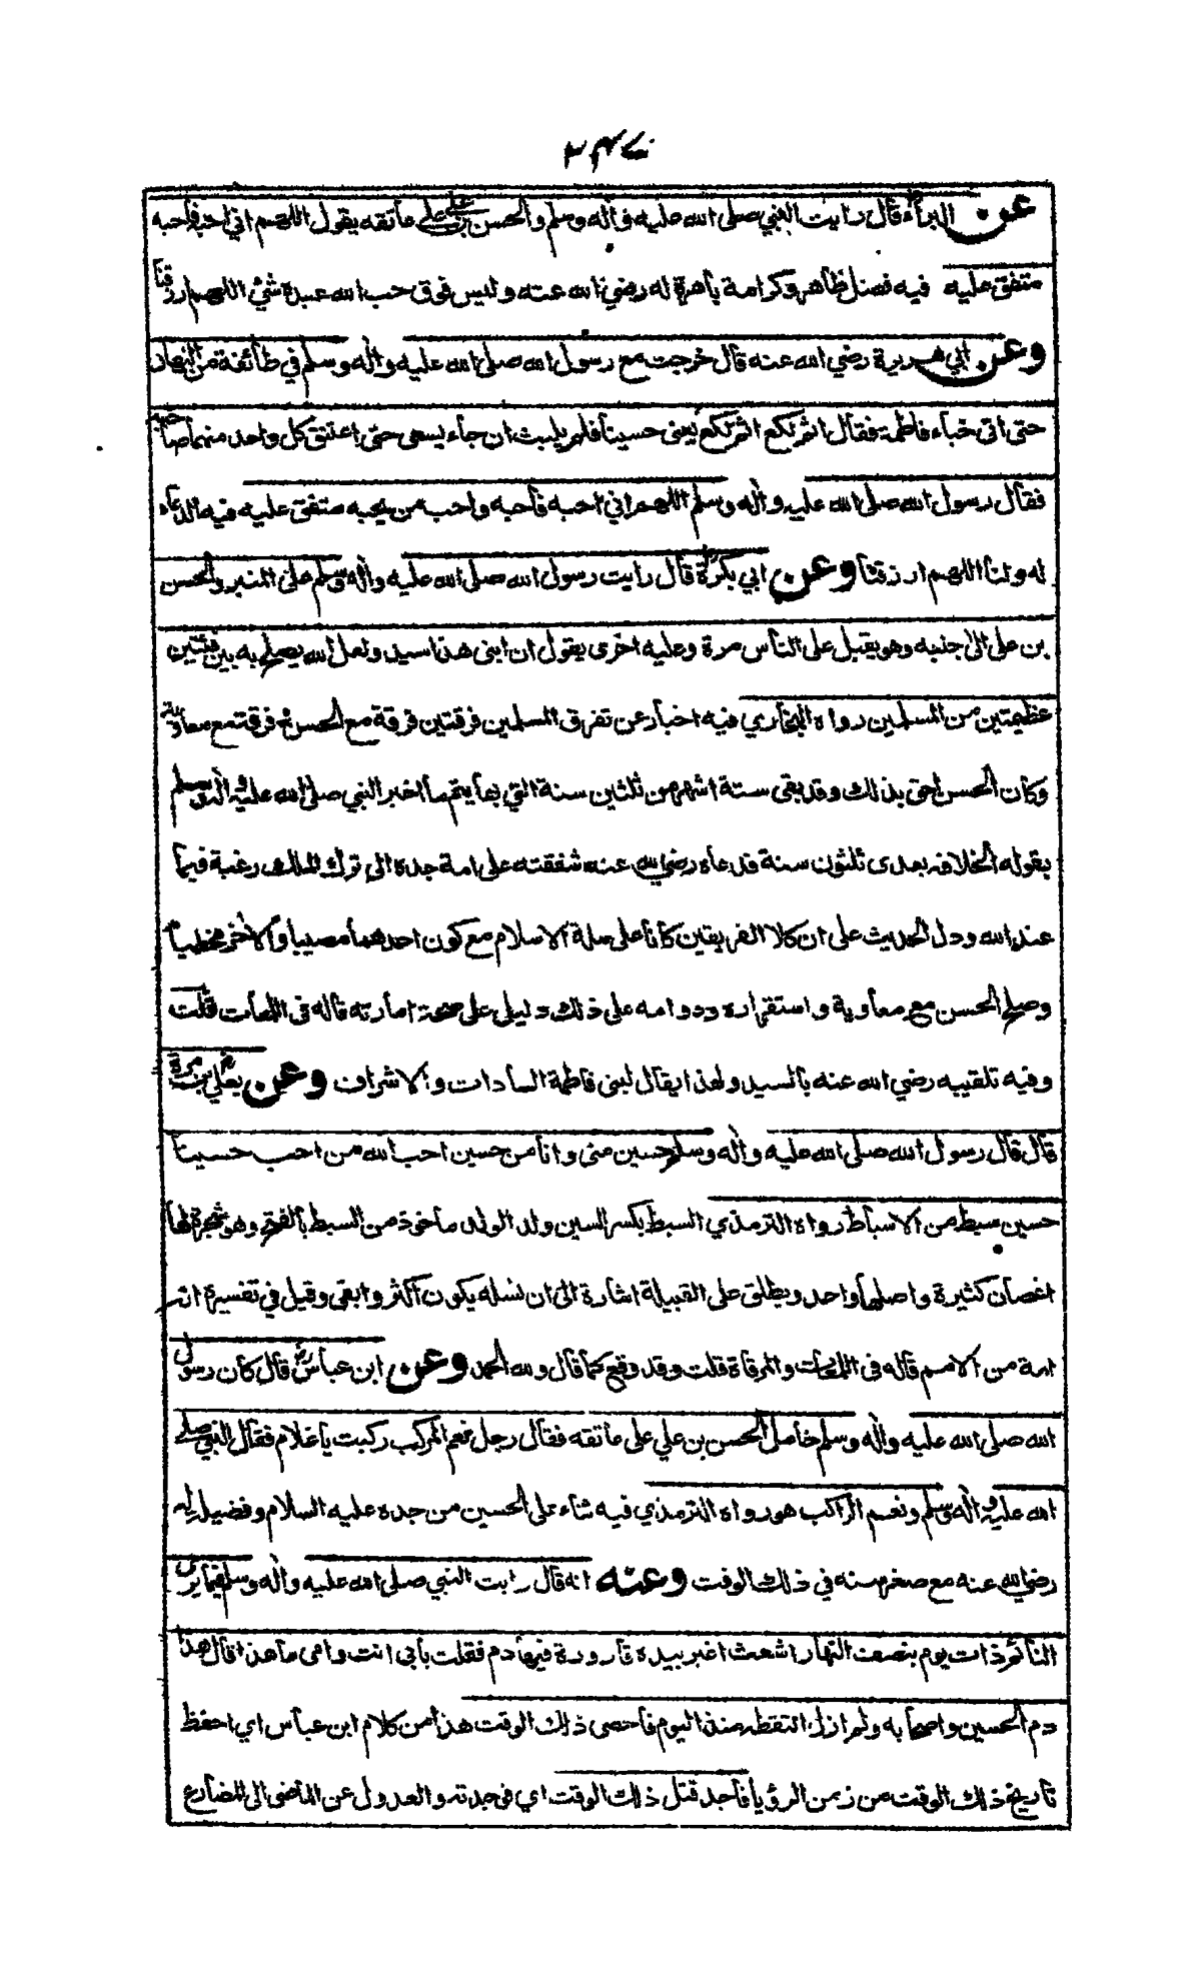 ٢٤٧
عن البراء قال رايت النبي صلى الله عليه واله وسلم والحسن بن علي على عاتقه يقول اللهم اني احبه فاحبه
متفق عليه فيه فضل ظاهر وكرامة باهرة له رضي الله عنه وليس فوق حب الله عبده شئ اللهم ارزقنا
وعن ابي هريرة رضي الله عنه قال خرجت مع رسول الله صلى الله عليه واله وسلم في طائفة من النهار
حتى اتى خباء فاطمة فقال اثم لكع اثم لكع يعنى حسينا فلم يلبث ان جاء يسعى حتى اعتنق كل واحد منهما صاحبه
فقال رسول الله صلى الله عليه واله وسلم اللهم اني احبه فاحبه واحب من يحبه متفق عليه فيه الدعاء
له ولنا اللهم ارزقنا وعن ابي بكرة قال رايت رسول الله صلى الله عليه واله وسلم على المنبر والحسن
بن علي الى جنبه وهو يقبل على الناس مرة وعليه اخرى يقول ان ابنى هذا سيد ولعل الله يصلح به بين فئتين
عظيمتين من المسلمين رواه البخاري فيه اخبار عن تفرق المسلمين فرقتين فرقة مع الحسن وفرقة مع معاوية
وكان الحسن احق بذلك وقد بقى ستة اشهر من ثلثين سنة التي بها يتم ما اخبر النبي صلى الله عليه واله وسلم
بقوله الخلافة بعدى ثلثون سنة قدعاه رضي الله عنه شفقته على امة جده الى ترك الملك رغبة فيما
عند الله ودل الحديث على ان كلا الفريقين كانا على ملة الاسلام مع كون احدهما مصيبا والاخر مخطيا
وصلح الحسن مع معاوية واستقراره ودوامه على ذلك دليل على صحة امارته قاله فى اللمعات قلت
وفيه تلقيبه رضي الله عنه بالسيد ولهذا يقال لبنى فاطمة السادات والاشراف وعن يعلى بن مرة
قال قال رسول الله صلى الله عليه واله وسلم حسين منى وانا من حسين احب الله من احب حسينا
حسين سبط من الاسباط رواه الترمذي السبط بكسر السين ولد الولد ماخوذ من السبط بالفتح وهو شجرة لها
اغصان كثيرة واصلها واحد ويطلق على القبيلة اشارة الى ان نسله يكون اكثر وابقى وقيل في تفسيره انه
امة من الامم قاله فى اللمعات والمرقاة قلت وقد وقع كما قال ولله الحمد وعن ابن عباس رض قال كان رسول
الله صلى الله عليه واله وسلم حامل الحسن بن علي على عاتقه فقال رجل نعم المركب ركبت يا غلام فقال النبي صلى
الله عليه واله وسلم ونعم الراكب هو رواه الترمذي فيه ثناء على الحسين من جده عليه السلام وفضيلة له
رضي الله عنه مع صغر سنه في ذلك الوقت وعنه انه قال رايت النبي صلى الله عليه واله وسلم فيما يرى
النائم ذات يوم بنصف النهار اشعث اغبر بيده قارورة فيها دم فقلت بابي انت وامى ما هذا قال هذا
دم الحسين واصحابه ولم ازل التقطه منذ اليوم فاحصى ذلك الوقت هذا من كلام ابن عباس اي احفظ
تاريخ ذلك الوقت من زمن الرؤيا فاجد قتل ذلك الوقت اي فوجدته والعدول عن الماضى الى المضارع